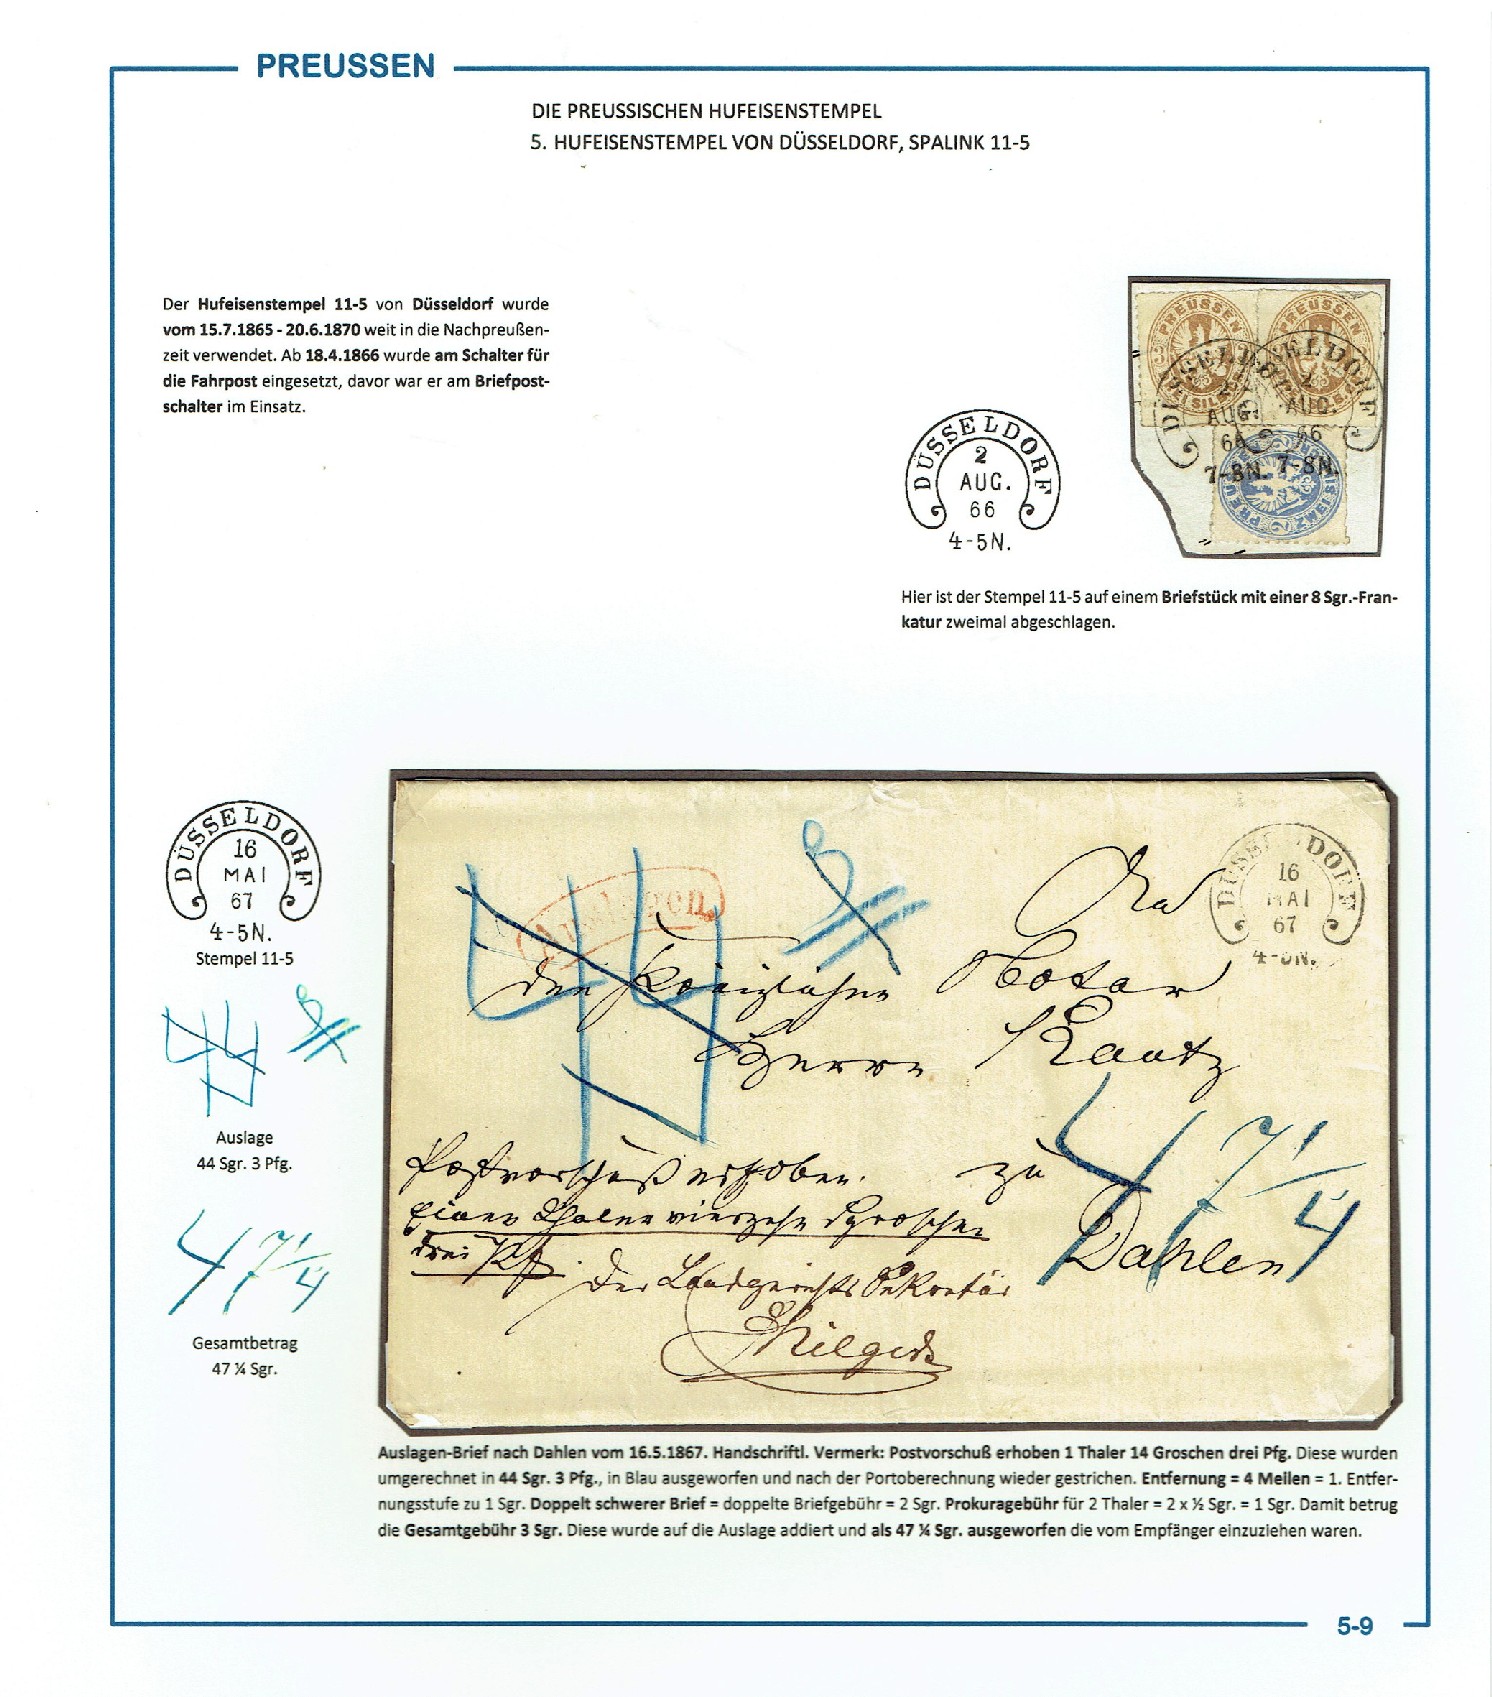 PREUSSEN
DIE PREUSSISCHEN HUFEISENSTEMPEL
5. HUFEISENSTEMPEL VON DÜSSELDORF, SPALINK 11-5
Der Hufeisenstempel 11-5 von Düsseldorf wurde
vom 15.7.1865 - 20.6.1870 weit in die Nachpreußen-
zeit verwendet. Ab 18.4.1866 wurde am Schalter für
die Fahrpost eingesetzt, davor war er am Briefpost-
schalter im Einsatz.
DÜSSELDORF
2
AUG.
66
4-5N.
PREUSSEN
PREUSSEN
DÜSSELDORF
2
AUG.
66
7-8N.
DÜSSELDORF
2
AUG.
66
7-8N.
Hier ist der Stempel 11-5 auf einem Briefstück mit einer 8 Sgr.-Fran-
katur zweimal abgeschlagen.
DÜSSELDORF
16
MAI
67
4-5N.
Stempel 11-5
44
3
Auslage
44 Sgr. 3 Pfg.
47 1/4
Gesamtbetrag
47 ¼ Sgr.
Auslagen.
44
DÜSSELDORF
16
MAI
67
4-5N.
An
den Königlichen Notar
Herrn Kautz
zu
Dahlen
47 1/4
Postvorschuß erhoben.
Einen Thaler vierzehn Groschen
drei Pf.
Der Landgerichts Sekretär
Hilgers
Auslagen-Brief nach Dahlen vom 16.5.1867. Handschriftl. Vermerk: Postvorschuß erhoben 1 Thaler 14 Groschen drei Pfg. Diese wurden
umgerechnet in 44 Sgr. 3 Pfg., in Blau ausgeworfen und nach der Portoberechnung wieder gestrichen. Entfernung = 4 Meilen = 1. Entfer-
nungsstufe zu 1 Sgr. Doppelt schwerer Brief = doppelte Briefgebühr = 2 Sgr. Prokuragebühr für 2 Thaler = 2 x ½ Sgr. = 1 Sgr. Damit betrug
die Gesamtgebühr 3 Sgr. Diese wurde auf die Auslage addiert und als 47 ¼ Sgr. ausgeworfen die vom Empfänger einzuziehen waren.
5-9